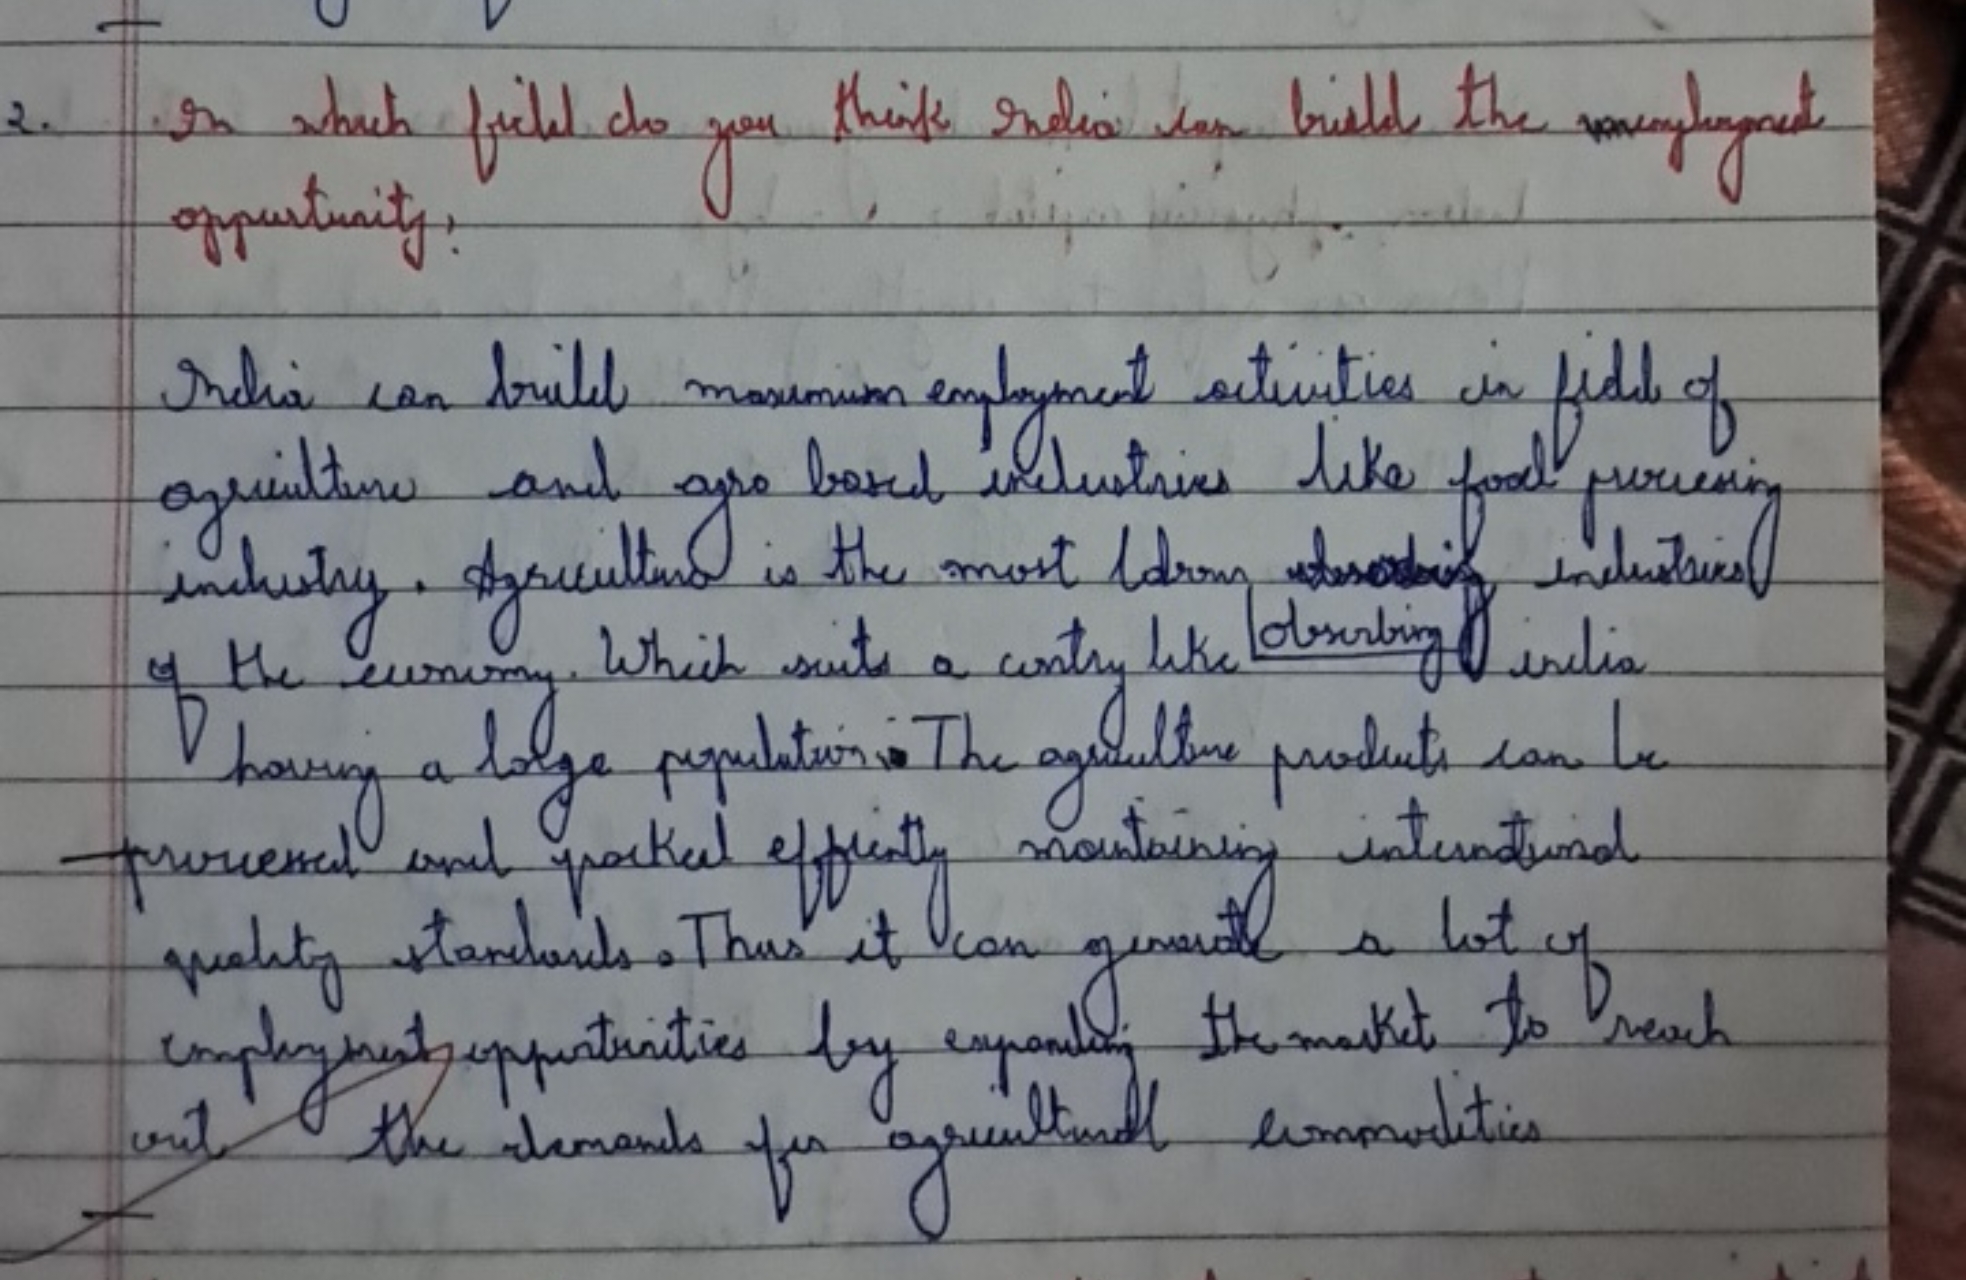 2. In which field do you think India can build the unemployment
oppurtunity?
India can build maximum employment activities in field of
agriculture and agro based industries like food processing
industry. Agriculture is the most labour industries
of the economy. Which suits a contry like obsorbing india
having a large population. The agriculture products can be
processed and packed effiently maintaining international
quality standards. Thus it can generate a lot of
employment oppurtunities by expanding the market to reach
out the demands for agricultural commodities